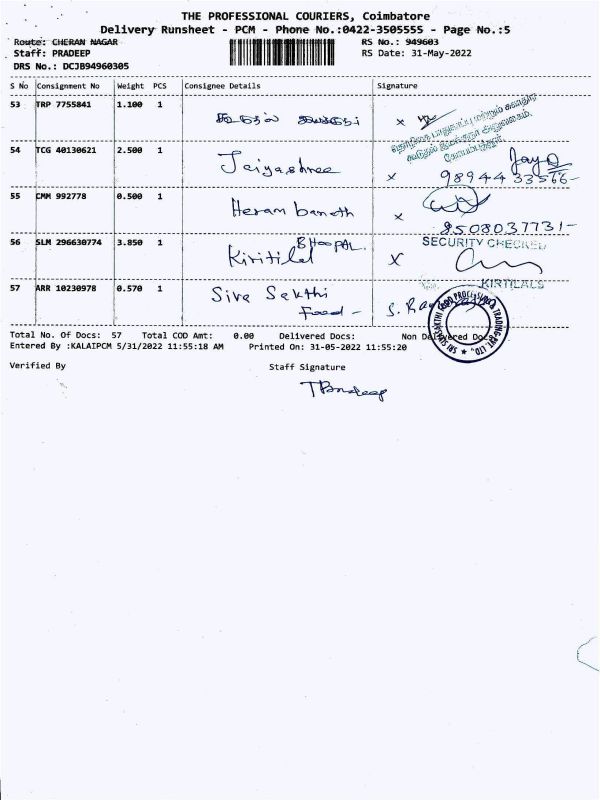 THE PROFESSIONAL COURIERS, Coimbatore
Delivery Runsheet - PCM - Phone No.:0422-3505555 - Page No.:5
Route: CHERAN NAGAR RS No.: 949603
Staff: PRADEEP RS Date: 31-May-2022
DRS No.: DCJB94960305
S No Consignment No Weight PCS Consignee Details Signature
53 TRP 7755841 1.100 1 கூடுதல் இயக்குநர் x
54 TCG 40130621 2.500 1 Jaiyashree x Jaya
9894433566-
55 CMM 992778 0.500 1 Heram x
8508037731-
56 SLM 296630774 3.850 1 BHOOPAL. Kiritilal x SECURITY CHECKED
KIRTILALS
57 ARR 10230978 0.570 1 Siva Sakthi
Food -
SRI SIVASAKTHI FOOD PROCESSING & TRADING PVT. LTD.,
Total No. Of Docs: 57 Total COD Amt: 0.00 Delivered Docs: Non Delivered Docs:
Entered By :KALAIPCM 5/31/2022 11:55:18 AM Printed On: 31-05-2022 11:55:20
Verified By Staff Signature